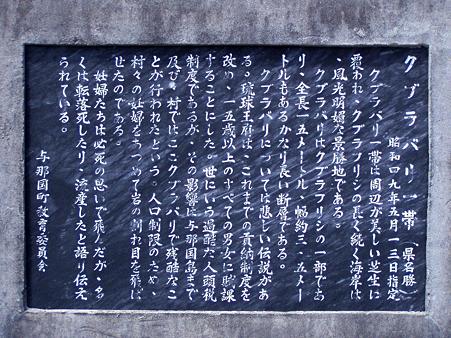 クブラバリ一帯（県名勝）
昭和四九年五月一三日指定
クブラバリ一帯は周辺が美しい芝生に
覆われ、クブラフリシの長く続く海岸は
、風光明媚な景勝地である。
クブラバリはクブラフリシの一部であ
り、全長一五メートル、幅約三、五メー
トルもあるかなり長い断層である。
クブラバリについては悲しい伝説があ
る。琉球王府は、これまでの貢納制度を
改め、一五歳以上のすべての男女に賦課
することにした。世にいう過酷な人頭税
制度であるが、その影響は与那国島まで
及び、村ではここクブラバリで残酷なこ
とが行われたという。人口制限のため、
村々の妊婦をあつめて岩の割れ目を飛ば
せたのである。
妊婦たちは必死の思いで飛んだが、多
くは転落死したり、流産したと語り伝え
られている。
与那国町教育委員会